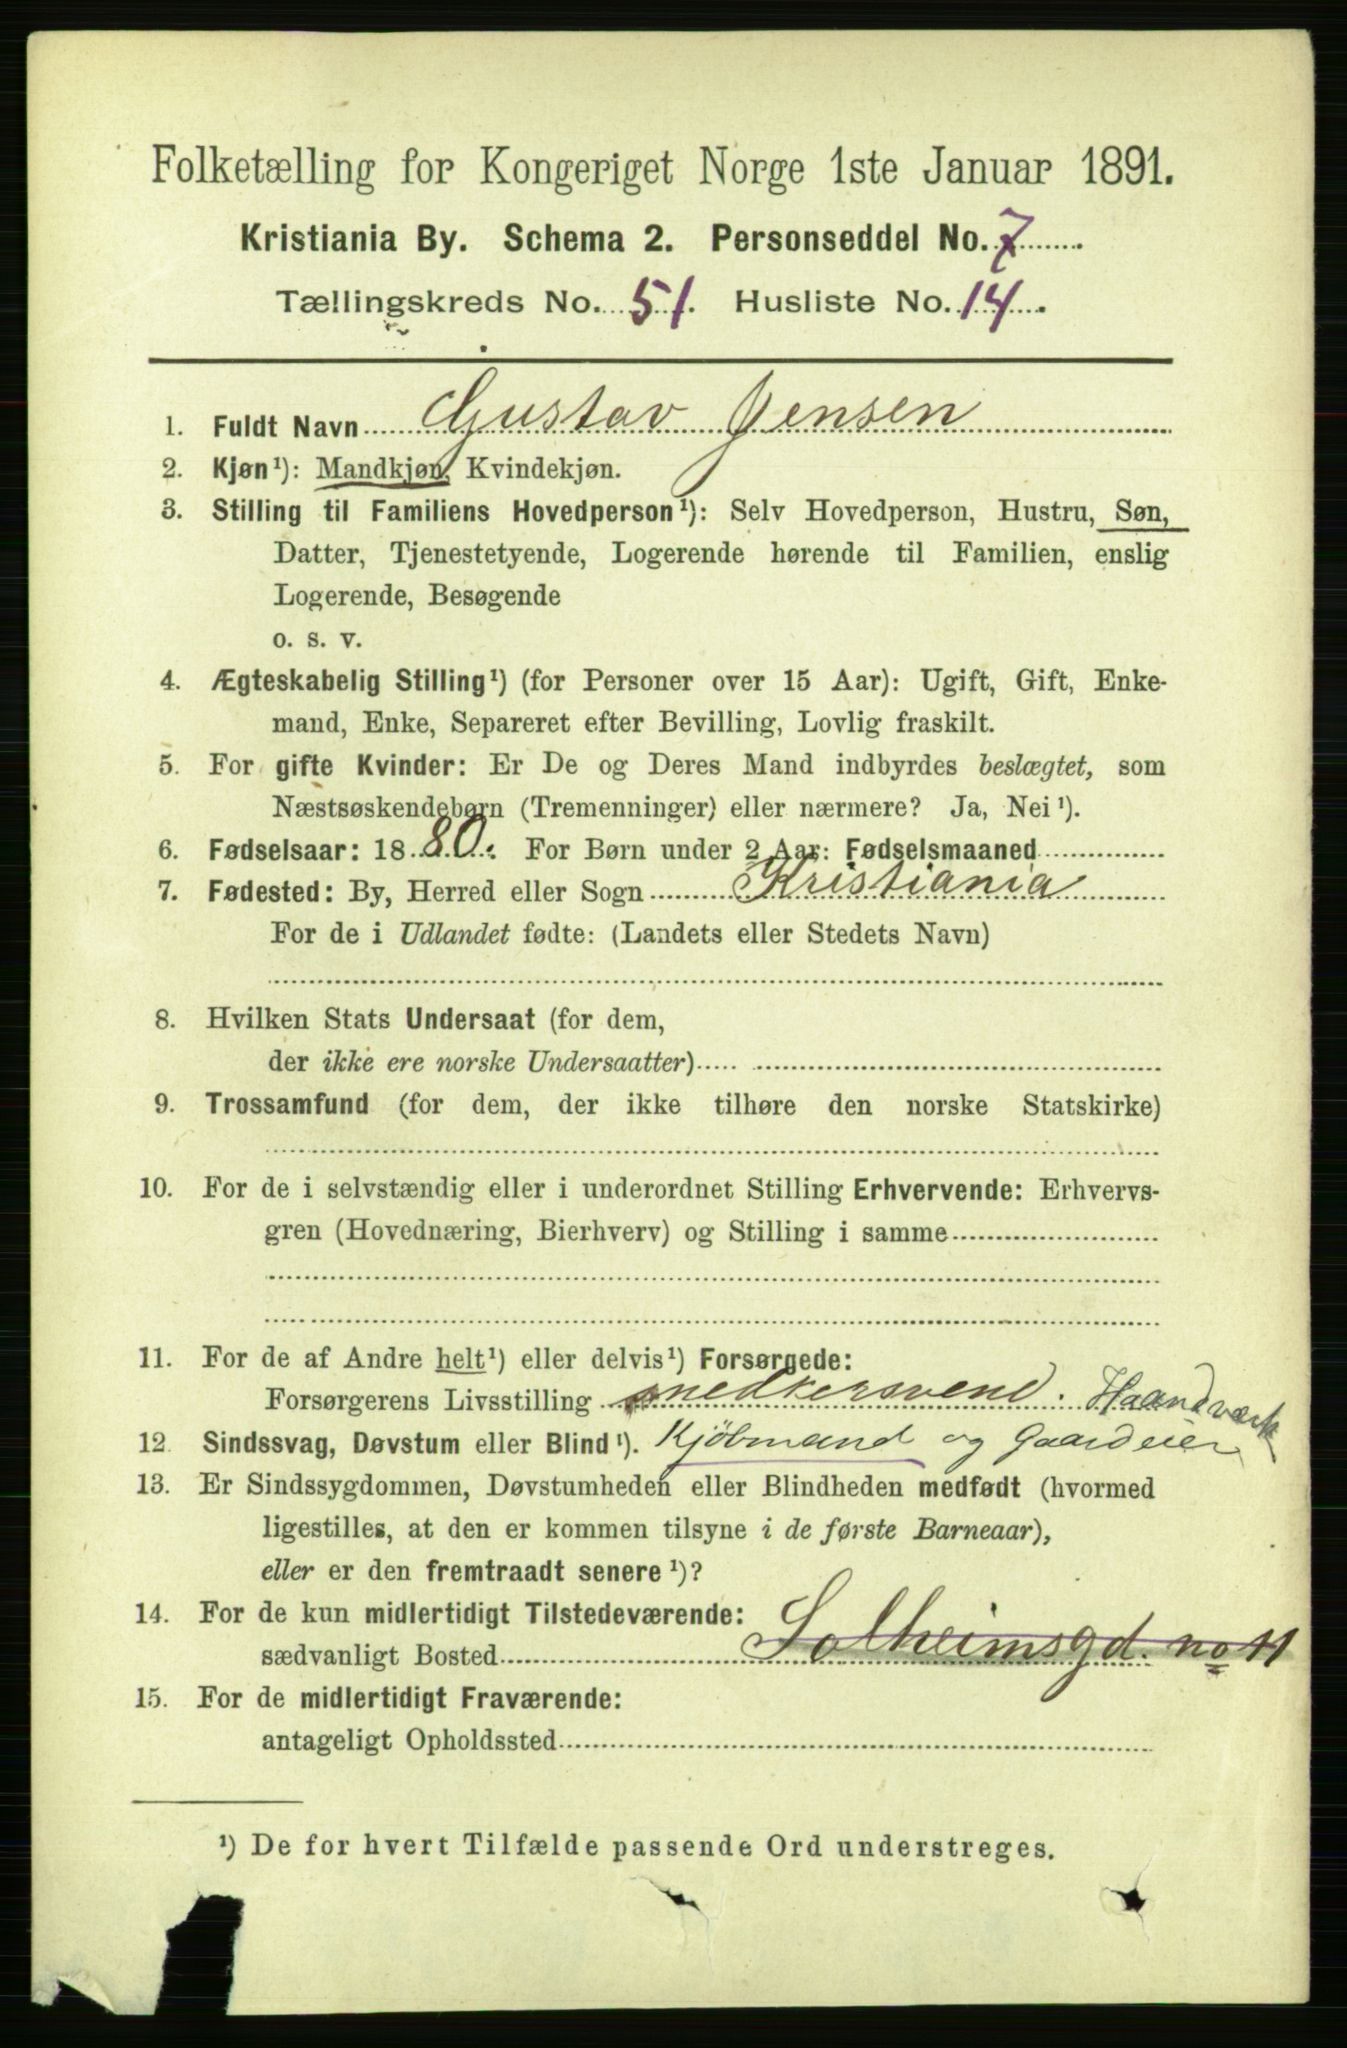 Folketælling for Kongeriget Norge 1ste Januar 1891.
Kristiania By. Schema 2. Personseddel No. 7
Tællingskreds No. 51. Husliste No. 14.
1. Fuldt Navn Gustav Jensen
2. Kjøn¹): Mandkjøn, Kvindekjøn.
3. Stilling til Familiens Hovedperson¹): Selv Hovedperson, Hustru, Søn,
Datter, Tjenestetyende, Logerende hørende til Familien, enslig
Logerende, Besøgende
o. s. v.
4. Ægteskabelig Stilling¹) (for Personer over 15 Aar): Ugift, Gift, Enke-
mand, Enke, Separeret efter Bevilling, Lovlig fraskilt.
5. For gifte Kvinder: Er De og Deres Mand indbyrdes beslægtet, som
Næstsøskendebørn (Tremenninger) eller nærmere? Ja, Nei¹).
6. Fødselsaar: 1880. For Børn under 2 Aar: Fødselsmaaned
7. Fødested: By, Herred eller Sogn Kristiania
For de i Udlandet fødte: (Landets eller Stedets Navn)
8. Hvilken Stats Undersaat (for dem,
der ikke ere norske Undersaatter)
9. Trossamfund (for dem, der ikke tilhøre den norske Statskirke)
10. For de i selvstændig eller i underordnet Stilling Erhvervende: Erhvervs-
gren (Hovednæring, Bierhverv) og Stilling i samme
11. For de af Andre helt¹) eller delvis¹) Forsørgede:
Forsørgerens Livsstilling snedkersvend. Haandværk
12. Sindssvag, Døvstum eller Blind¹). Kjöbmand og Gaardeier
13. Er Sindssygdommen, Døvstumheden eller Blindheden medfødt (hvormed
ligestilles, at den er kommen tilsyne i de første Barneaar),
eller er den fremtraadt senere¹)?
14. For de kun midlertidigt Tilstedeværende:
sædvanligt Bosted Solheimsgd. no 11
15. For de midlertidigt Fraværende:
antageligt Opholdssted
¹) De for hvert Tilfælde passende Ord understreges.